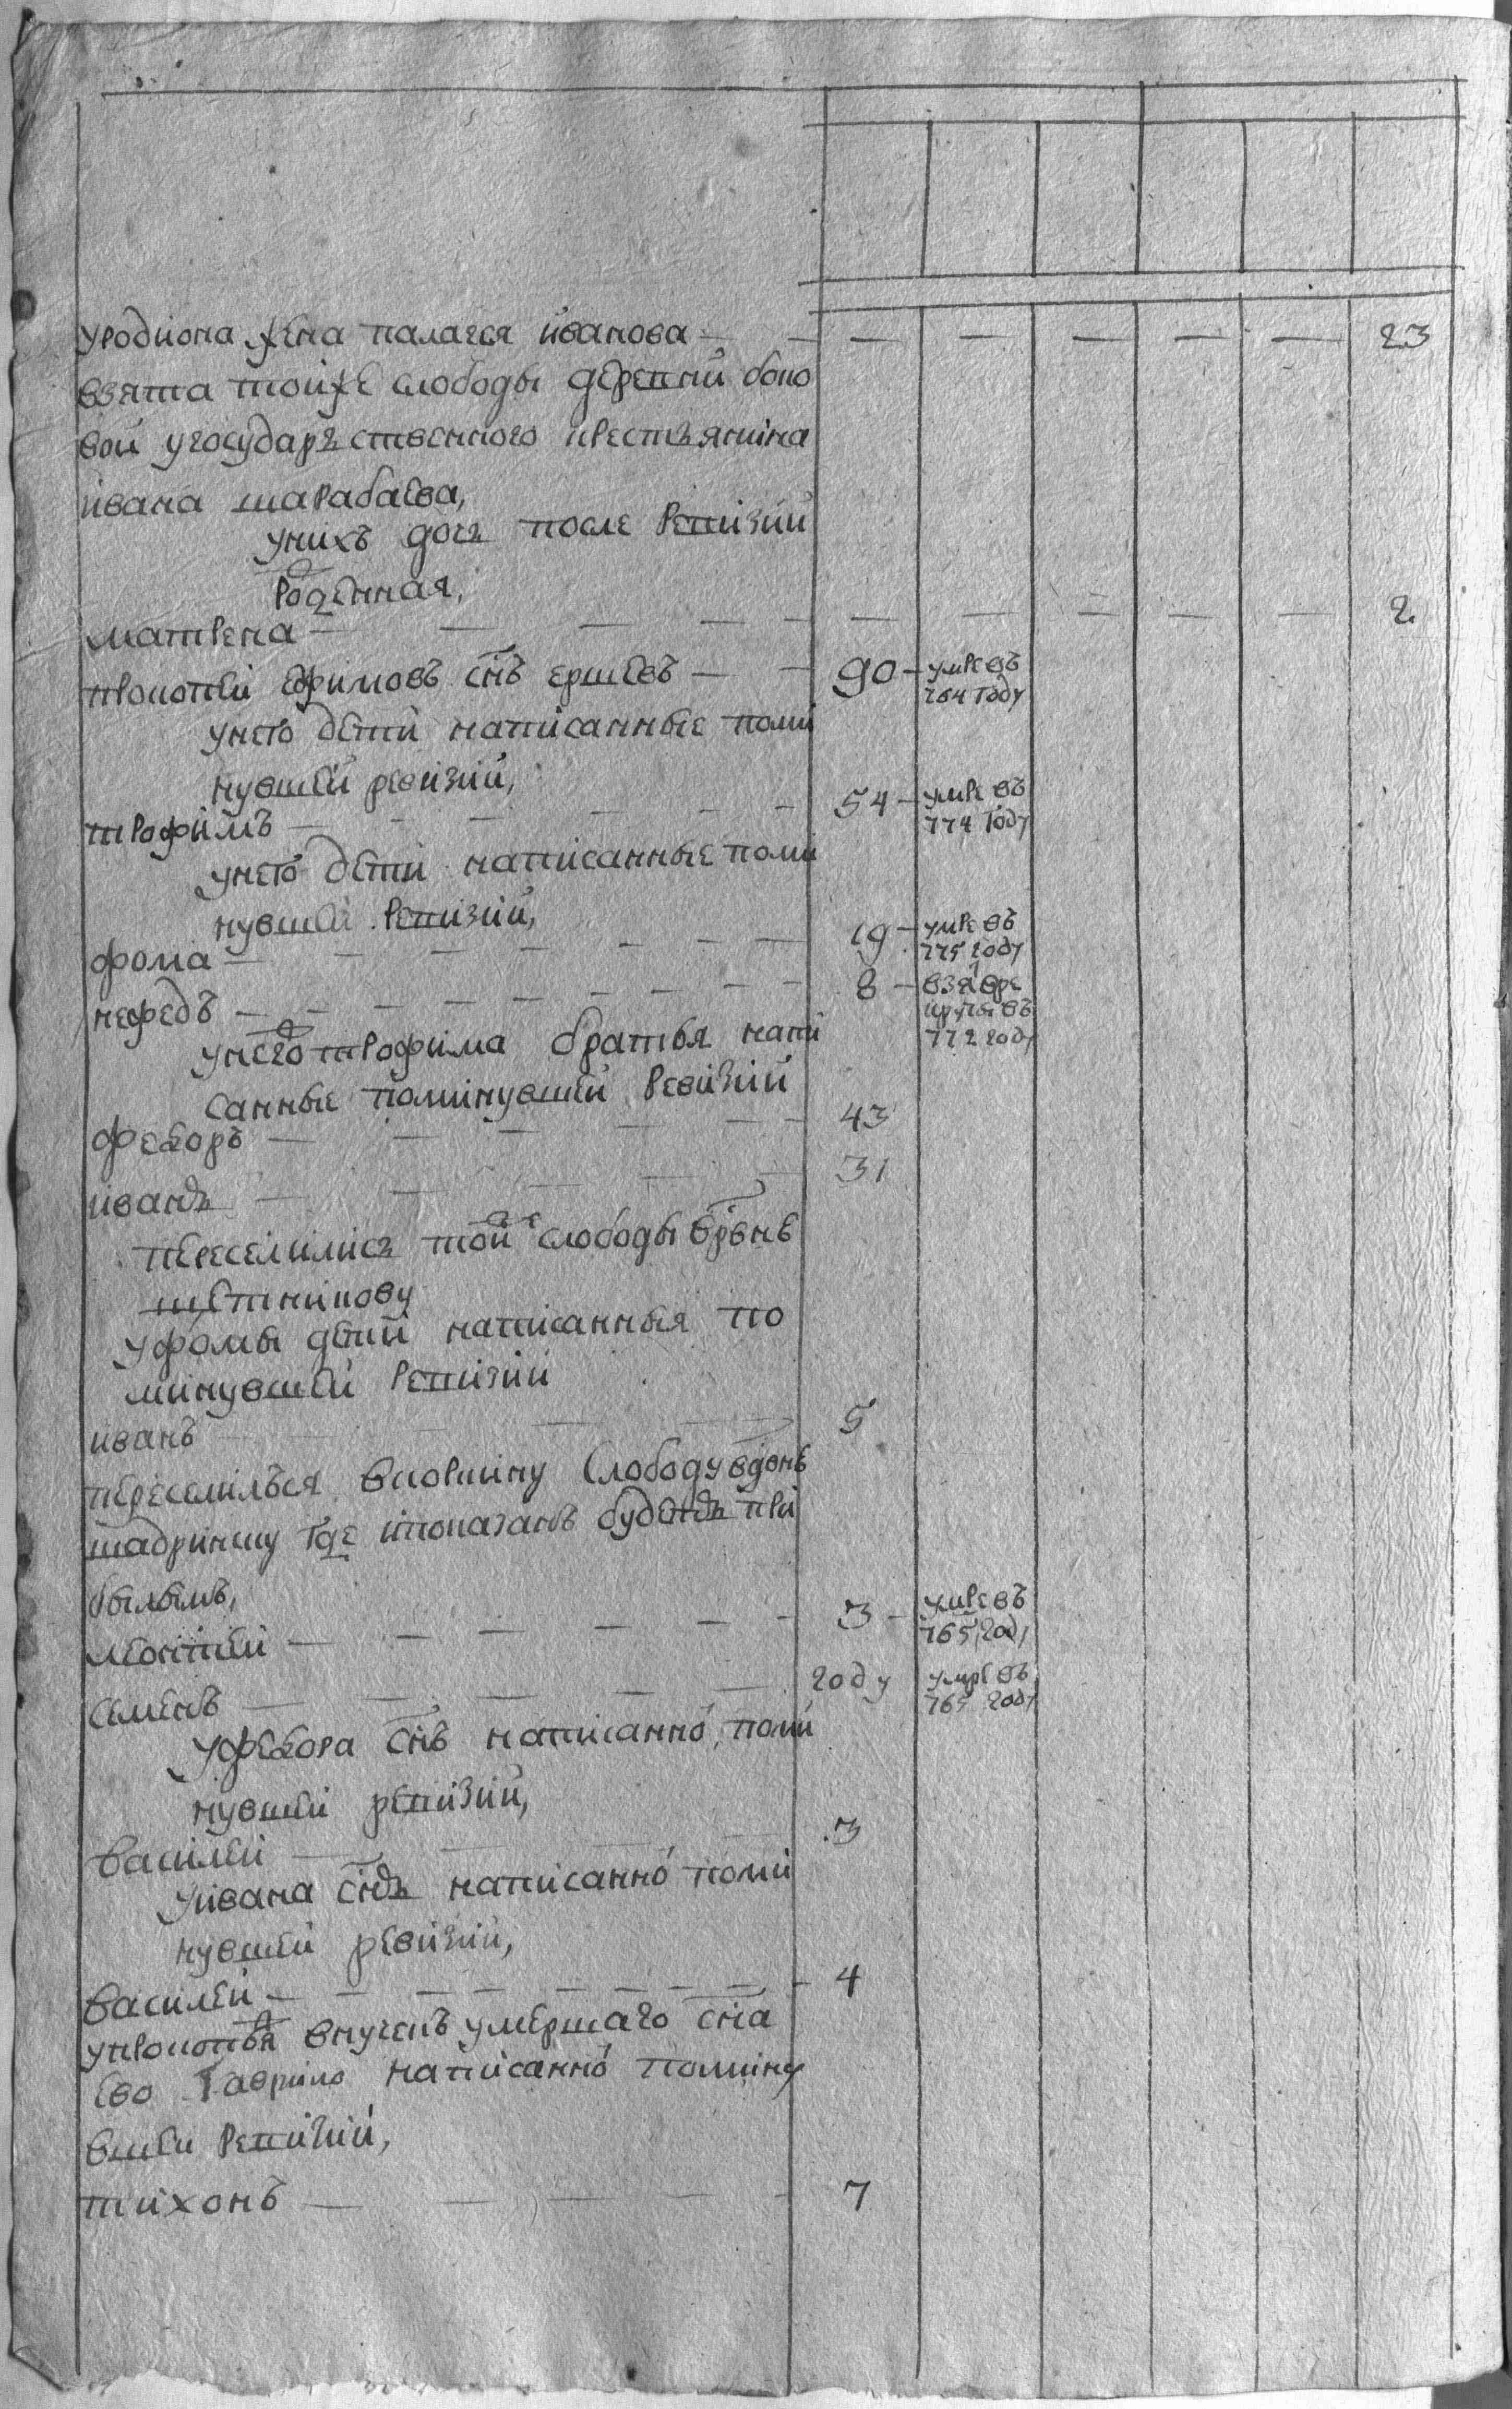 уродиона жена палагея иванова — — — — — — — 23
взята тойже слободы деревни боко
вой угосударственного крестьянина
ивана шарабаева,
унихъ дочь после ревизии
рожденная,
матрена — — — — — — — — — — 2
прокопей ефимовъ снъ ершевъ — — 90 — умре въ
764 году
унего дети написанные поми
нувшей ревизии,
трофимъ — — — — — — 54 — умре въ
774 году
унего дети написанные поми
нувшей ревизии,
фома — — — — — — 19 — умре въ
775 году
нефедъ — — — — — — — 8 — взят вре
круты въ
772 году
унего трофима братья напи
санные поминувшей ревизии
федоръ — — — — — 43
иванъ — — — — — 31
переселились той же слободы врвне
щетникову
уфомы детей написанныя по
минувшей ревизии
иванъ — — — 5
переселился вкоркину слободу вдвне
шадринцу где ипоказанъ будетъ при
былымъ,
леонтей — — — — — — 3 — умре въ
765 году
семенъ — — — — — году умре въ
765 году
уфедора снъ написанно поми
нувшей ревизии,
василей — — — 3
уивана снъ написанно поми
нувшей ревизии,
василей — — — — — — — — 4
упрокопья внучекъ умершаго сна
ево гаврило написанно помину
вшей ревизии,
тихонъ — — — — 7